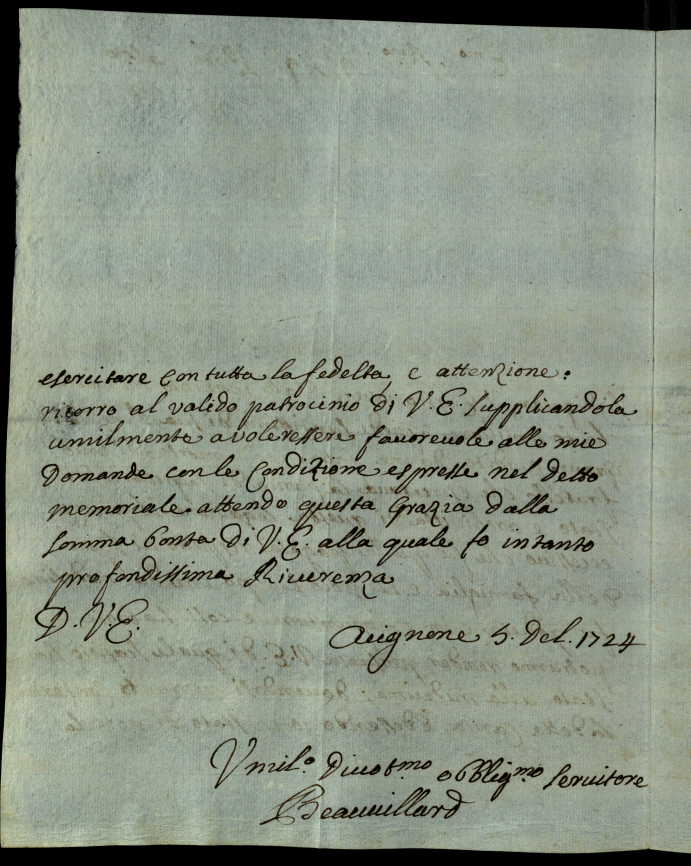 esercitare con tutta la fedeltà, e attenzione:
ricorro al valido patrocinio di V. E. supplicandola
umilmente a voler essere favorevole alle mie
Domande con le Condizione espresse nel detto
memoriale. attendo questa Grazia dalla
somma bonta di V. E. alla quale fo intanto
profondissima Riverenza
D. V. E.
Avignone 5. del. 1724
Vmil.o Divot.mo obblig.mo servitore
Beauvillard